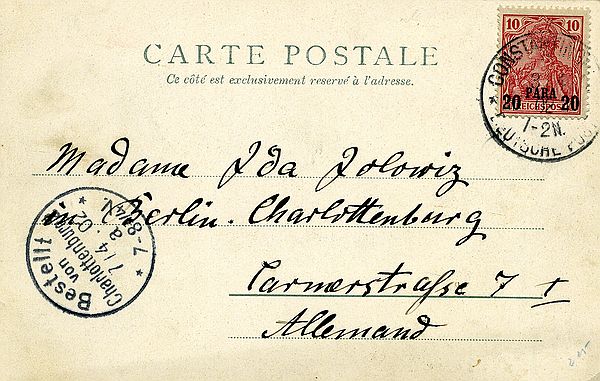 CARTE POSTALE
Ce côté est exclusivement reservé à l'adresse.
10 10
20 PARA 20
REICHSPOST
1-2N.
DEUTSCHE POST
Madame Ida Jolowiz
in Berlin-Charlottenburg
Carmerstrasse 7 I
Allemand
Bestellt
von
Charlottenburg
7/4.02
7-8¼N.